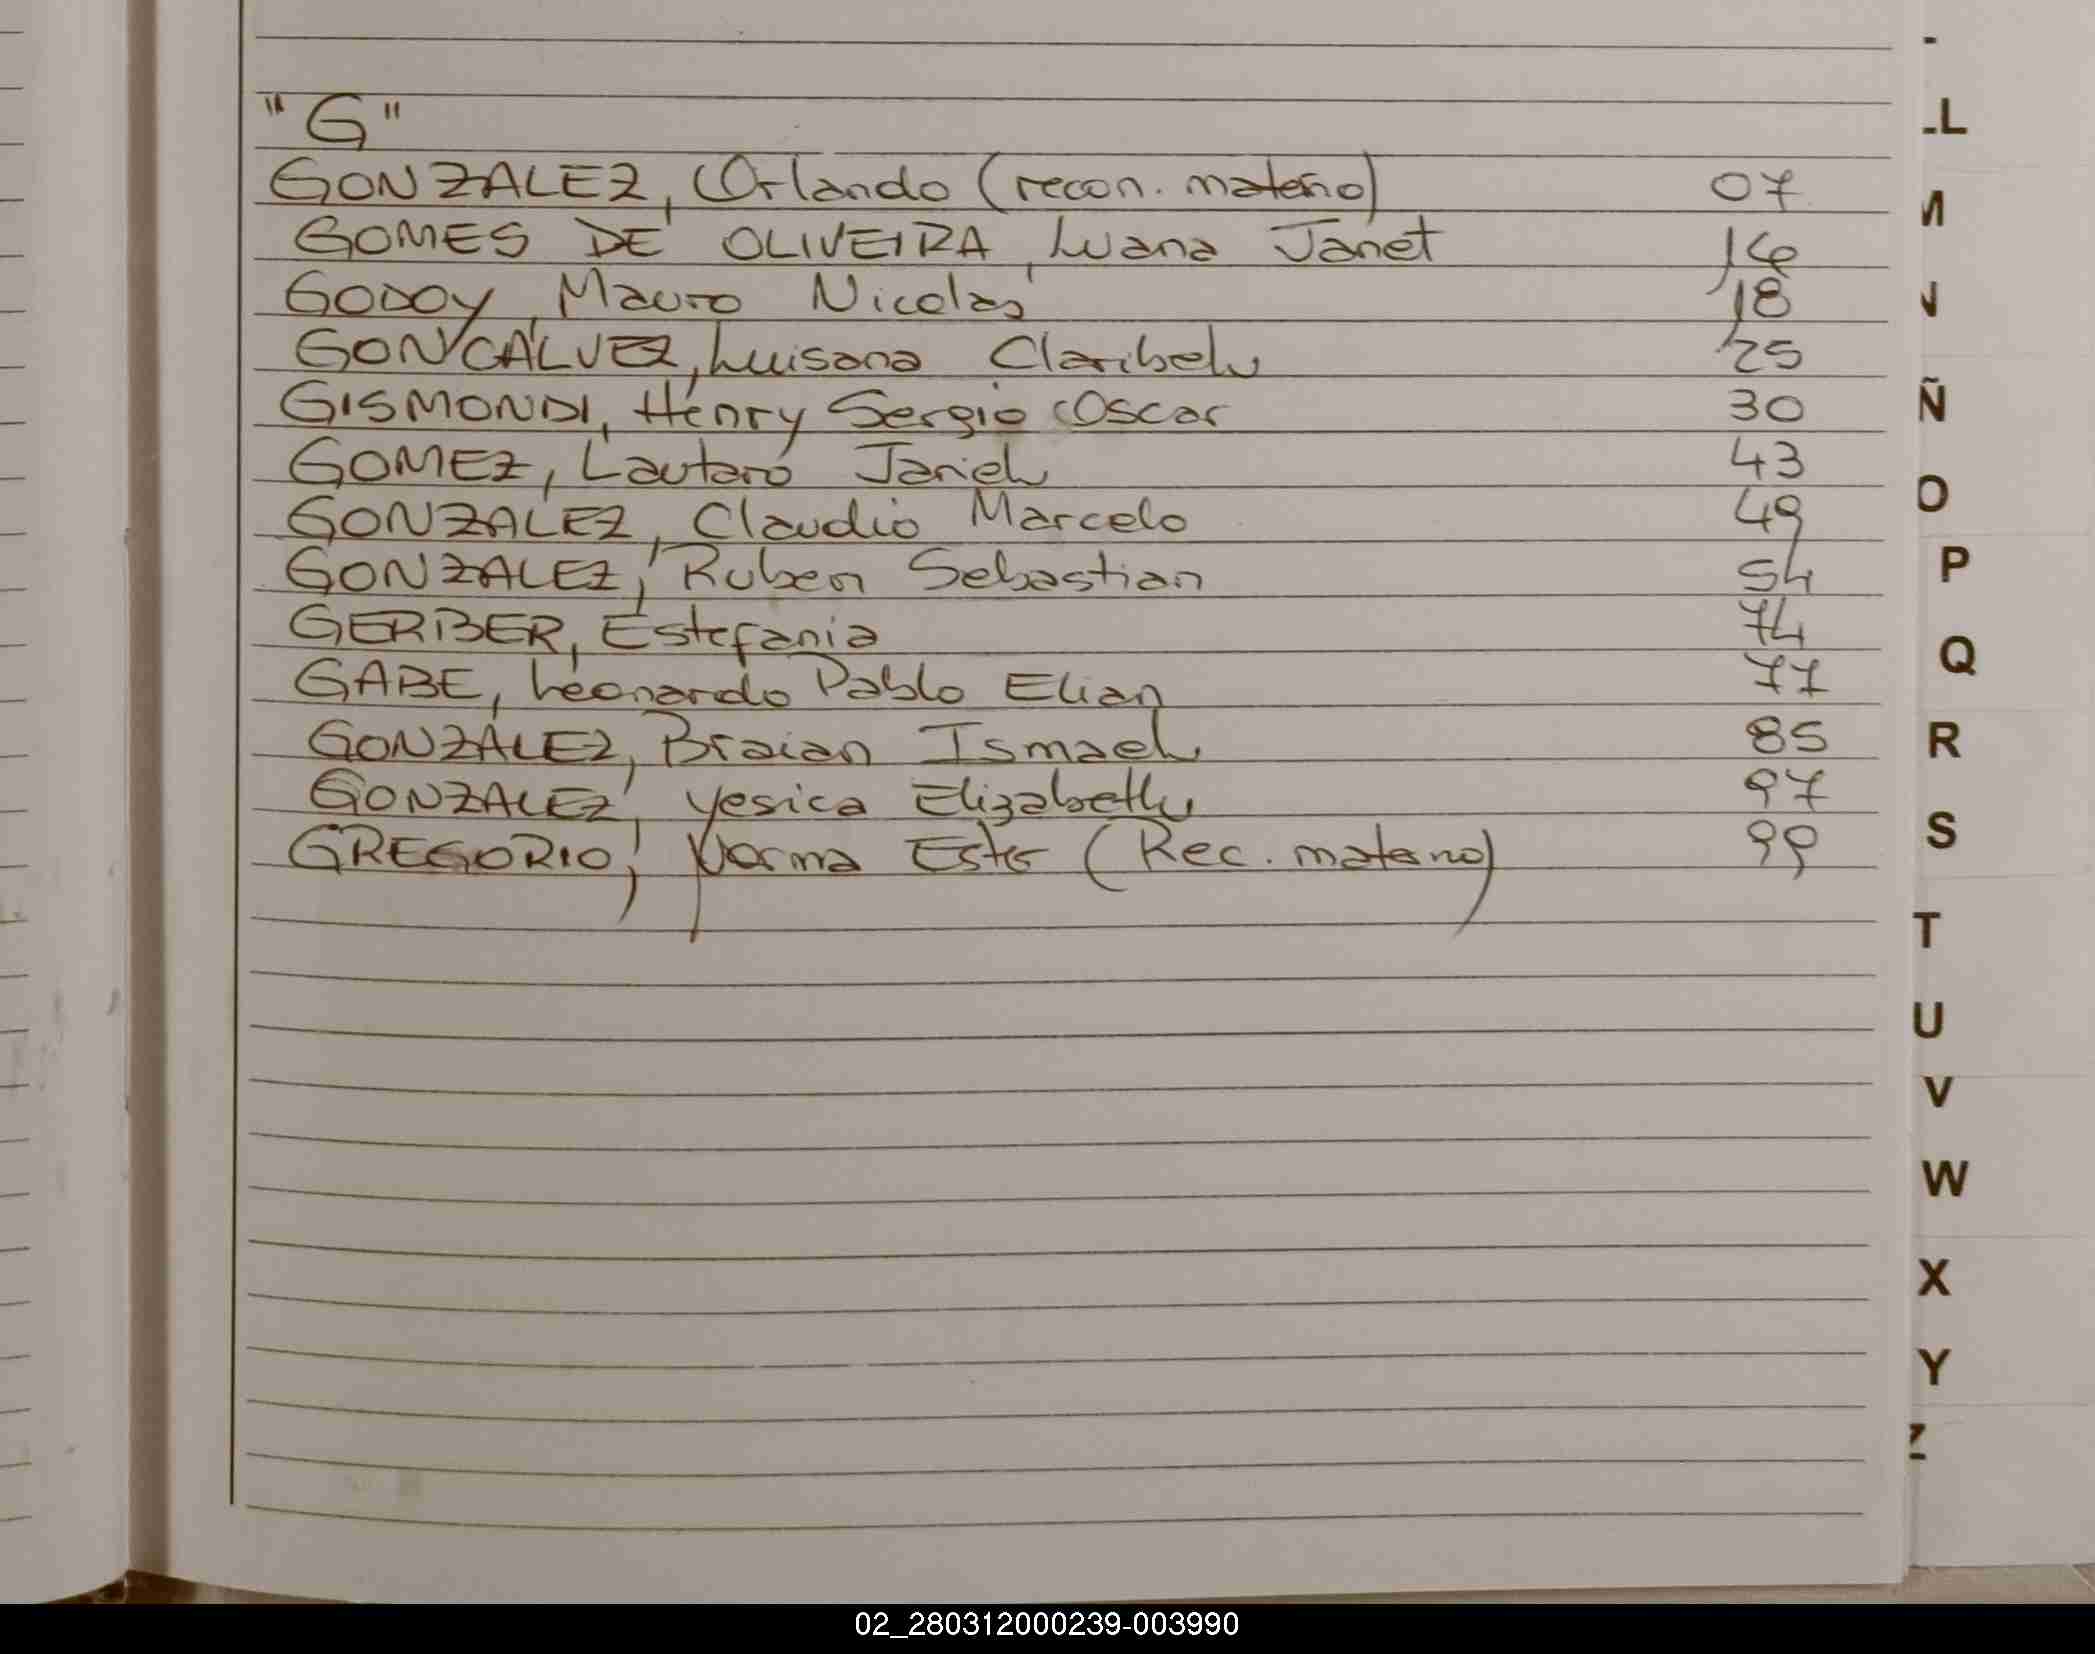 "G"
GONZALEZ, Orlando (recon. materno) 07
GOMES DE OLIVEIRA, Luana Janet 16
GODOY, Mauro Nicolas 18
GONCALVEZ, Luisana Claribel 25
GISMONDI, Henry Sergio Oscar 30
GOMEZ, Lautaro Jariel 43
GONZALEZ, Claudio Marcelo 49
GONZALEZ, Ruben Sebastian 54
GERBER, Estefania 74
GABE, Leonardo Pablo Elian 77
GONZALEZ, Braian Ismael 85
GONZALEZ, Yesica Elizabeth 97
GREGORIO, Norma Ester (Rec. materno) 99
LL
M
N
Ñ
O
P
Q
R
S
T
U
V
W
X
Y
Z
02_280312000239-003990